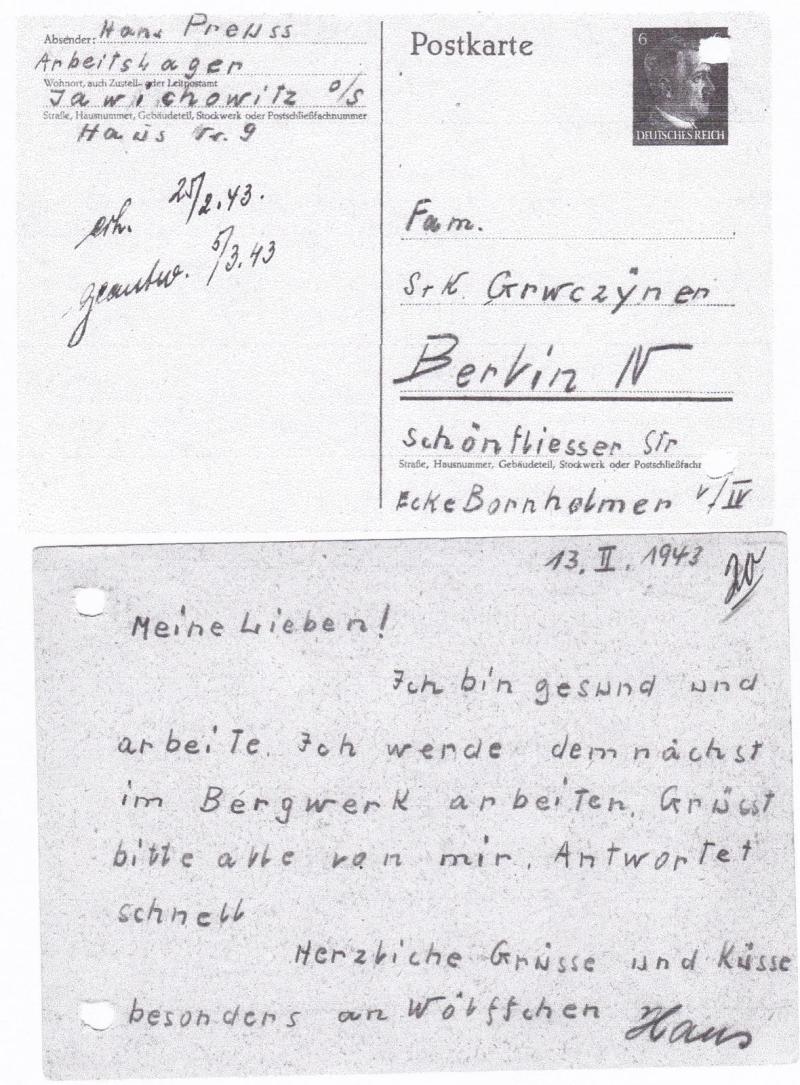 Absender: Hans Preuss
Arbeitslager
Wohnort, auch Zustell- oder Leitpostamt
Jawichowitz O/S
Straße, Hausnummer, Gebäudeteil, Stockwerk oder Postschließfachnummer
Haus Nr. 9
erh. 25/2.43.
geantw. 5/3.43
Postkarte
6
DEUTSCHES REICH
Fam.
Grwczÿner
Berlin N
Schönfliesser Str
Straße, Hausnummer, Gebäudeteil, Stockwerk oder Postschließfachr
Ecke Bornholmer V/IV
13. II. 1943
20
Meine Lieben!
Ich bin gesund und
arbeite. Ich werde demnächst
im Bergwerk arbeiten. Grüsst
bitte alle von mir. Antwortet
schnell
Herzliche Grüsse und Küsse
besonders an Wölffchen Hans